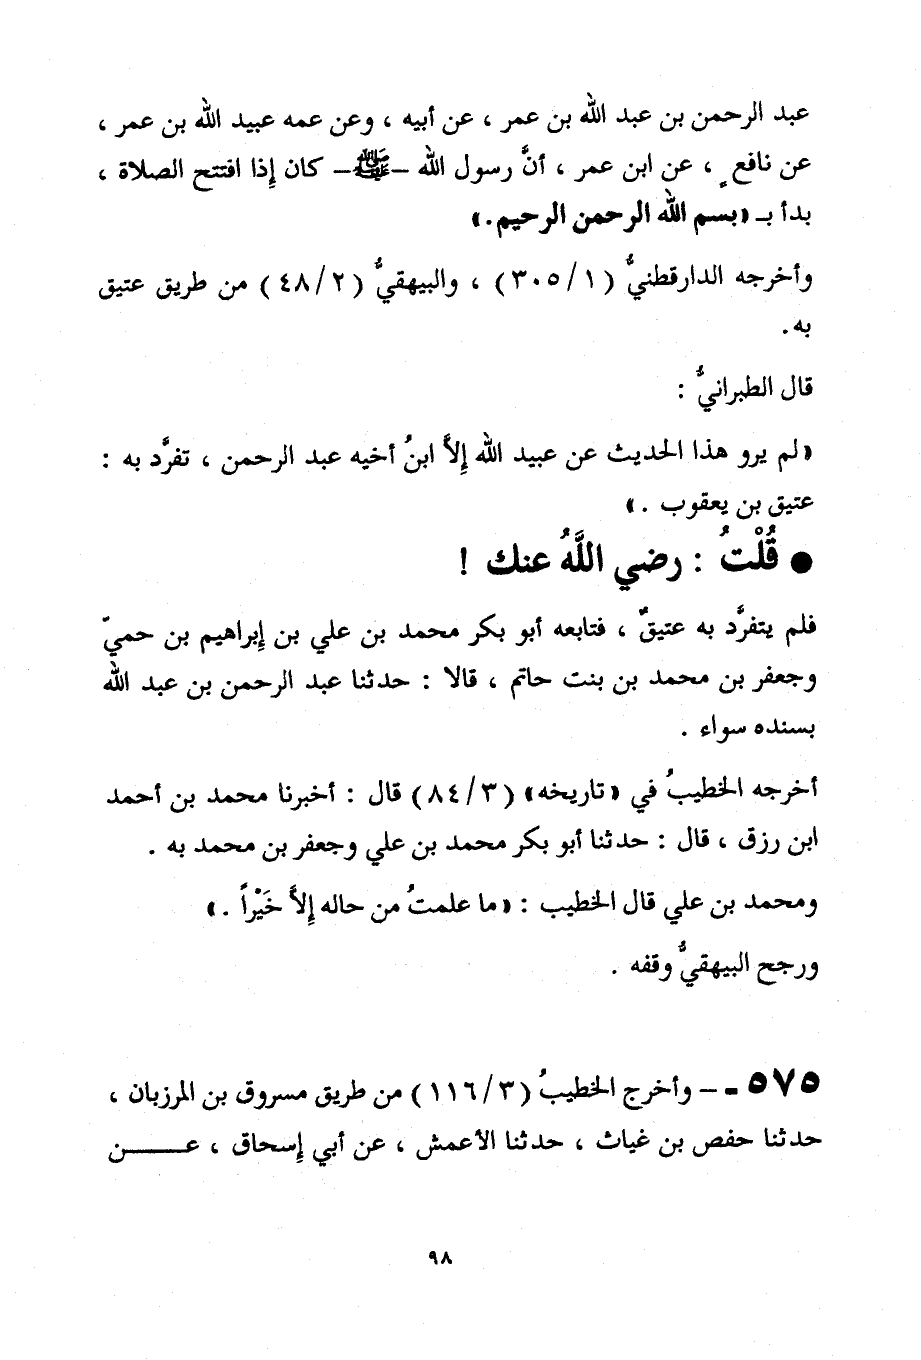 عبد الرحمن بن عبد الله بن عمر ، عن أبيه ، وعن عمه عبيد الله بن عمر ،
عن نافعٍ ، عن ابن عمر ، أنَّ رسول الله -ﷺ- كان إذا افتتح الصلاة ،
بدأ بـ «بسم الله الرحمن الرحيم.»
وأخرجه الدارقطنيُّ (٣٠٥/١) ، والبيهقيُّ (٤٨/٢) من طريق عتيق
به.
قال الطبرانيُّ :
«لم يرو هذا الحديث عن عبيد الله إلاَّ ابنُ أخيه عبد الرحمن ، تفرَّد به :
عتيق بن يعقوب .»
● قُلْتُ : رضي اللَّهُ عنك !
فلم يتفرَّد به عتيقٌ ، فتابعه أبو بكر محمد بن علي بن إبراهيم بن حميّ
وجعفر بن محمد بن بنت حاتم ، قالا : حدثنا عبد الرحمن بن عبد الله
بسنده سواء .
أخرجه الخطيبُ في «تاريخه» (٨٤/٣) قال : أخبرنا محمد بن أحمد
ابن رزق ، قال : حدثنا أبو بكر محمد بن علي وجعفر بن محمد به .
ومحمد بن علي قال الخطيب : «ما علمتُ من حاله إلاَّ خَيْراً .»
ورجح البيهقيُّ وقفه .
٥٧٥ - – وأخرج الخطيبُ (١١٦/٣) من طريق مسروق بن المرزبان ،
حدثنا حفص بن غياث ، حدثنا الأعمش ، عن أبي إسحاق ، عــــن
٩٨